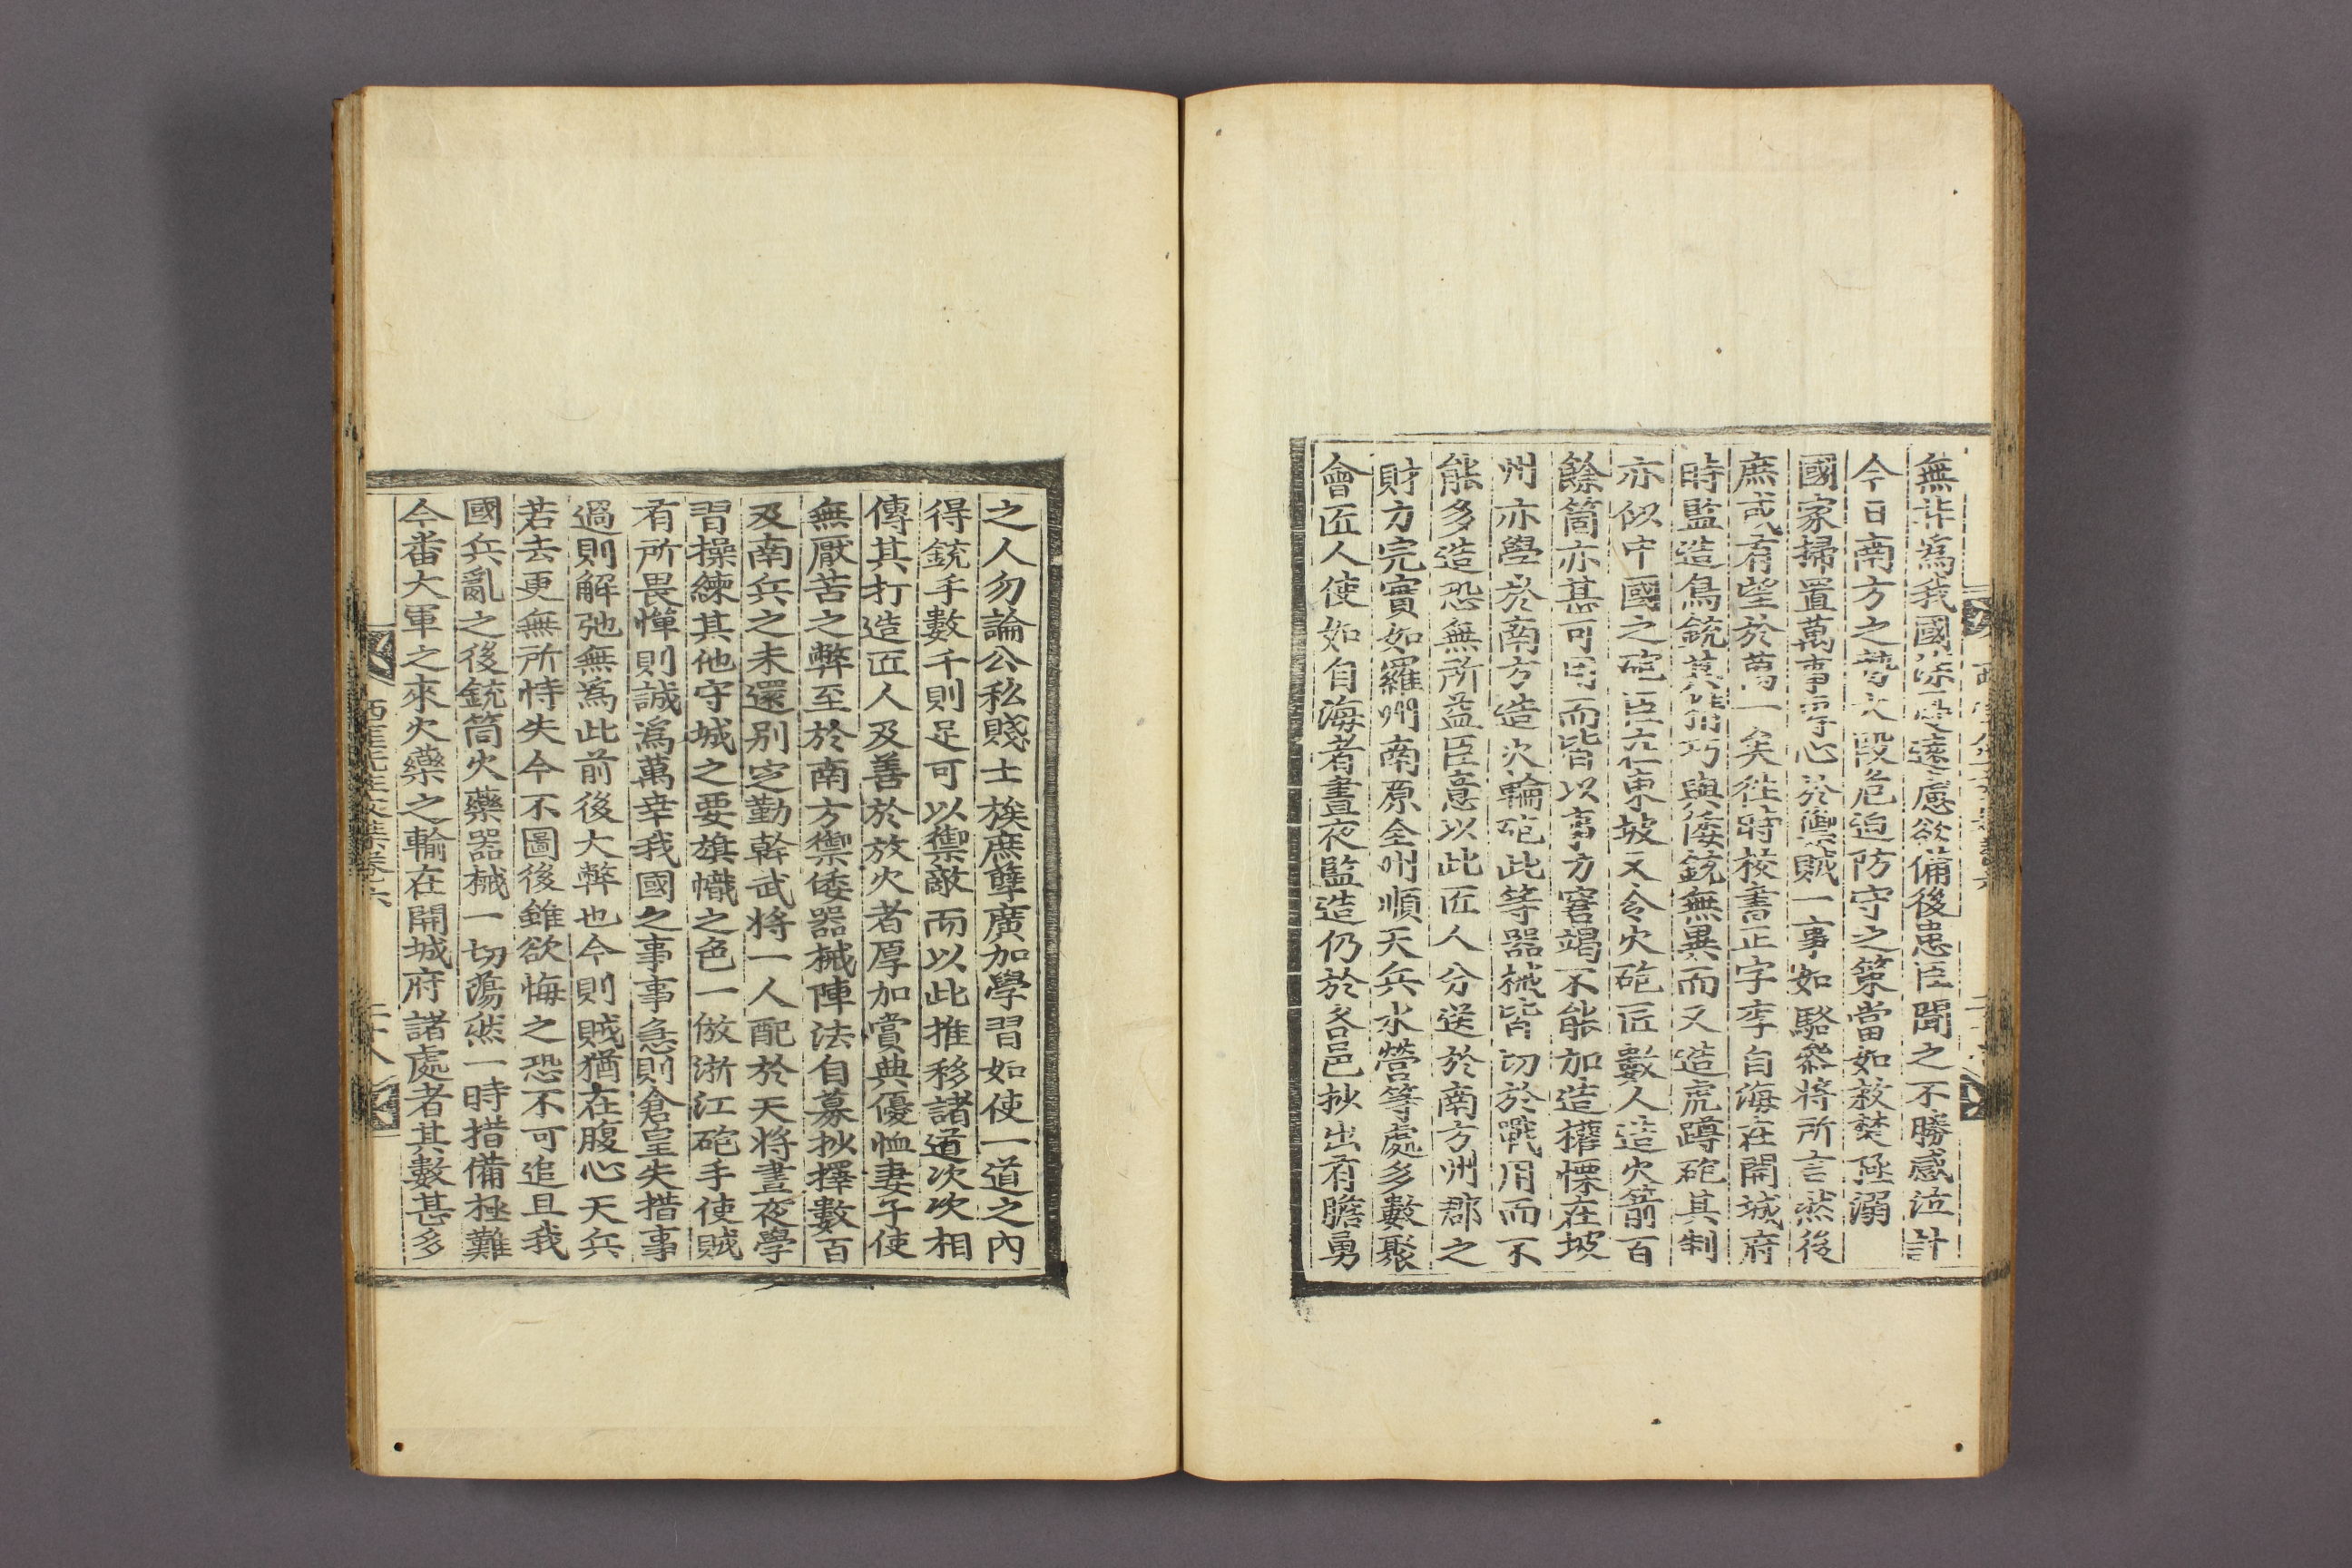 無非爲我國深思遠慮欲備後患臣聞之不勝感泣計
今日南方之勢大段危迫防守之策當如救焚拯溺
國家掃置萬事專心於禦賊一事如駱參將所言然後
庶或有望於萬一矣往時校書正字李自海在開城府
時監造鳥銃其精巧與倭銃無異而又造虎蹲砲其制
亦似中國之砲臣在東坡又令火砲匠數人造火箭百
餘筒亦甚可用而皆以事方窘竭不能加造權慄在坡
州亦學於南方造火輪砲此等器械皆切於戰用而不
能多造恐無所益臣意以此匠人分送於南方州郡之
財方完實如羅州南原全州順天兵水營等處多數聚
會匠人使如自海者晝夜監造仍於各邑抄出有膽勇
之人勿論公私賤士族庶孽廣加學習如使一道之內
得銃手數千則足可以禦敵而以此推移諸道次次相
傳其打造匠人及善於放火者厚加賞典優恤妻子使
無厭苦之弊至於南方禦倭器械陣法自募抄擇數百
及南兵之未還別定勤幹武將一人配於天將晝夜學
習操練其他守城之要旗幟之色一倣浙江砲手使賊
有所畏憚則誠爲萬幸我國之事事急則倉皇失措事
過則解弛無爲此前後大弊也今則賊猶在腹心天兵
若去更無所恃失今不圖後雖欲悔之恐不可追且我
國兵亂之後銃筒火藥器械一切蕩然一時措備極難
今番大軍之來火藥之輸在開城府諸處者其數甚多
西厓先生文集卷六
二十八